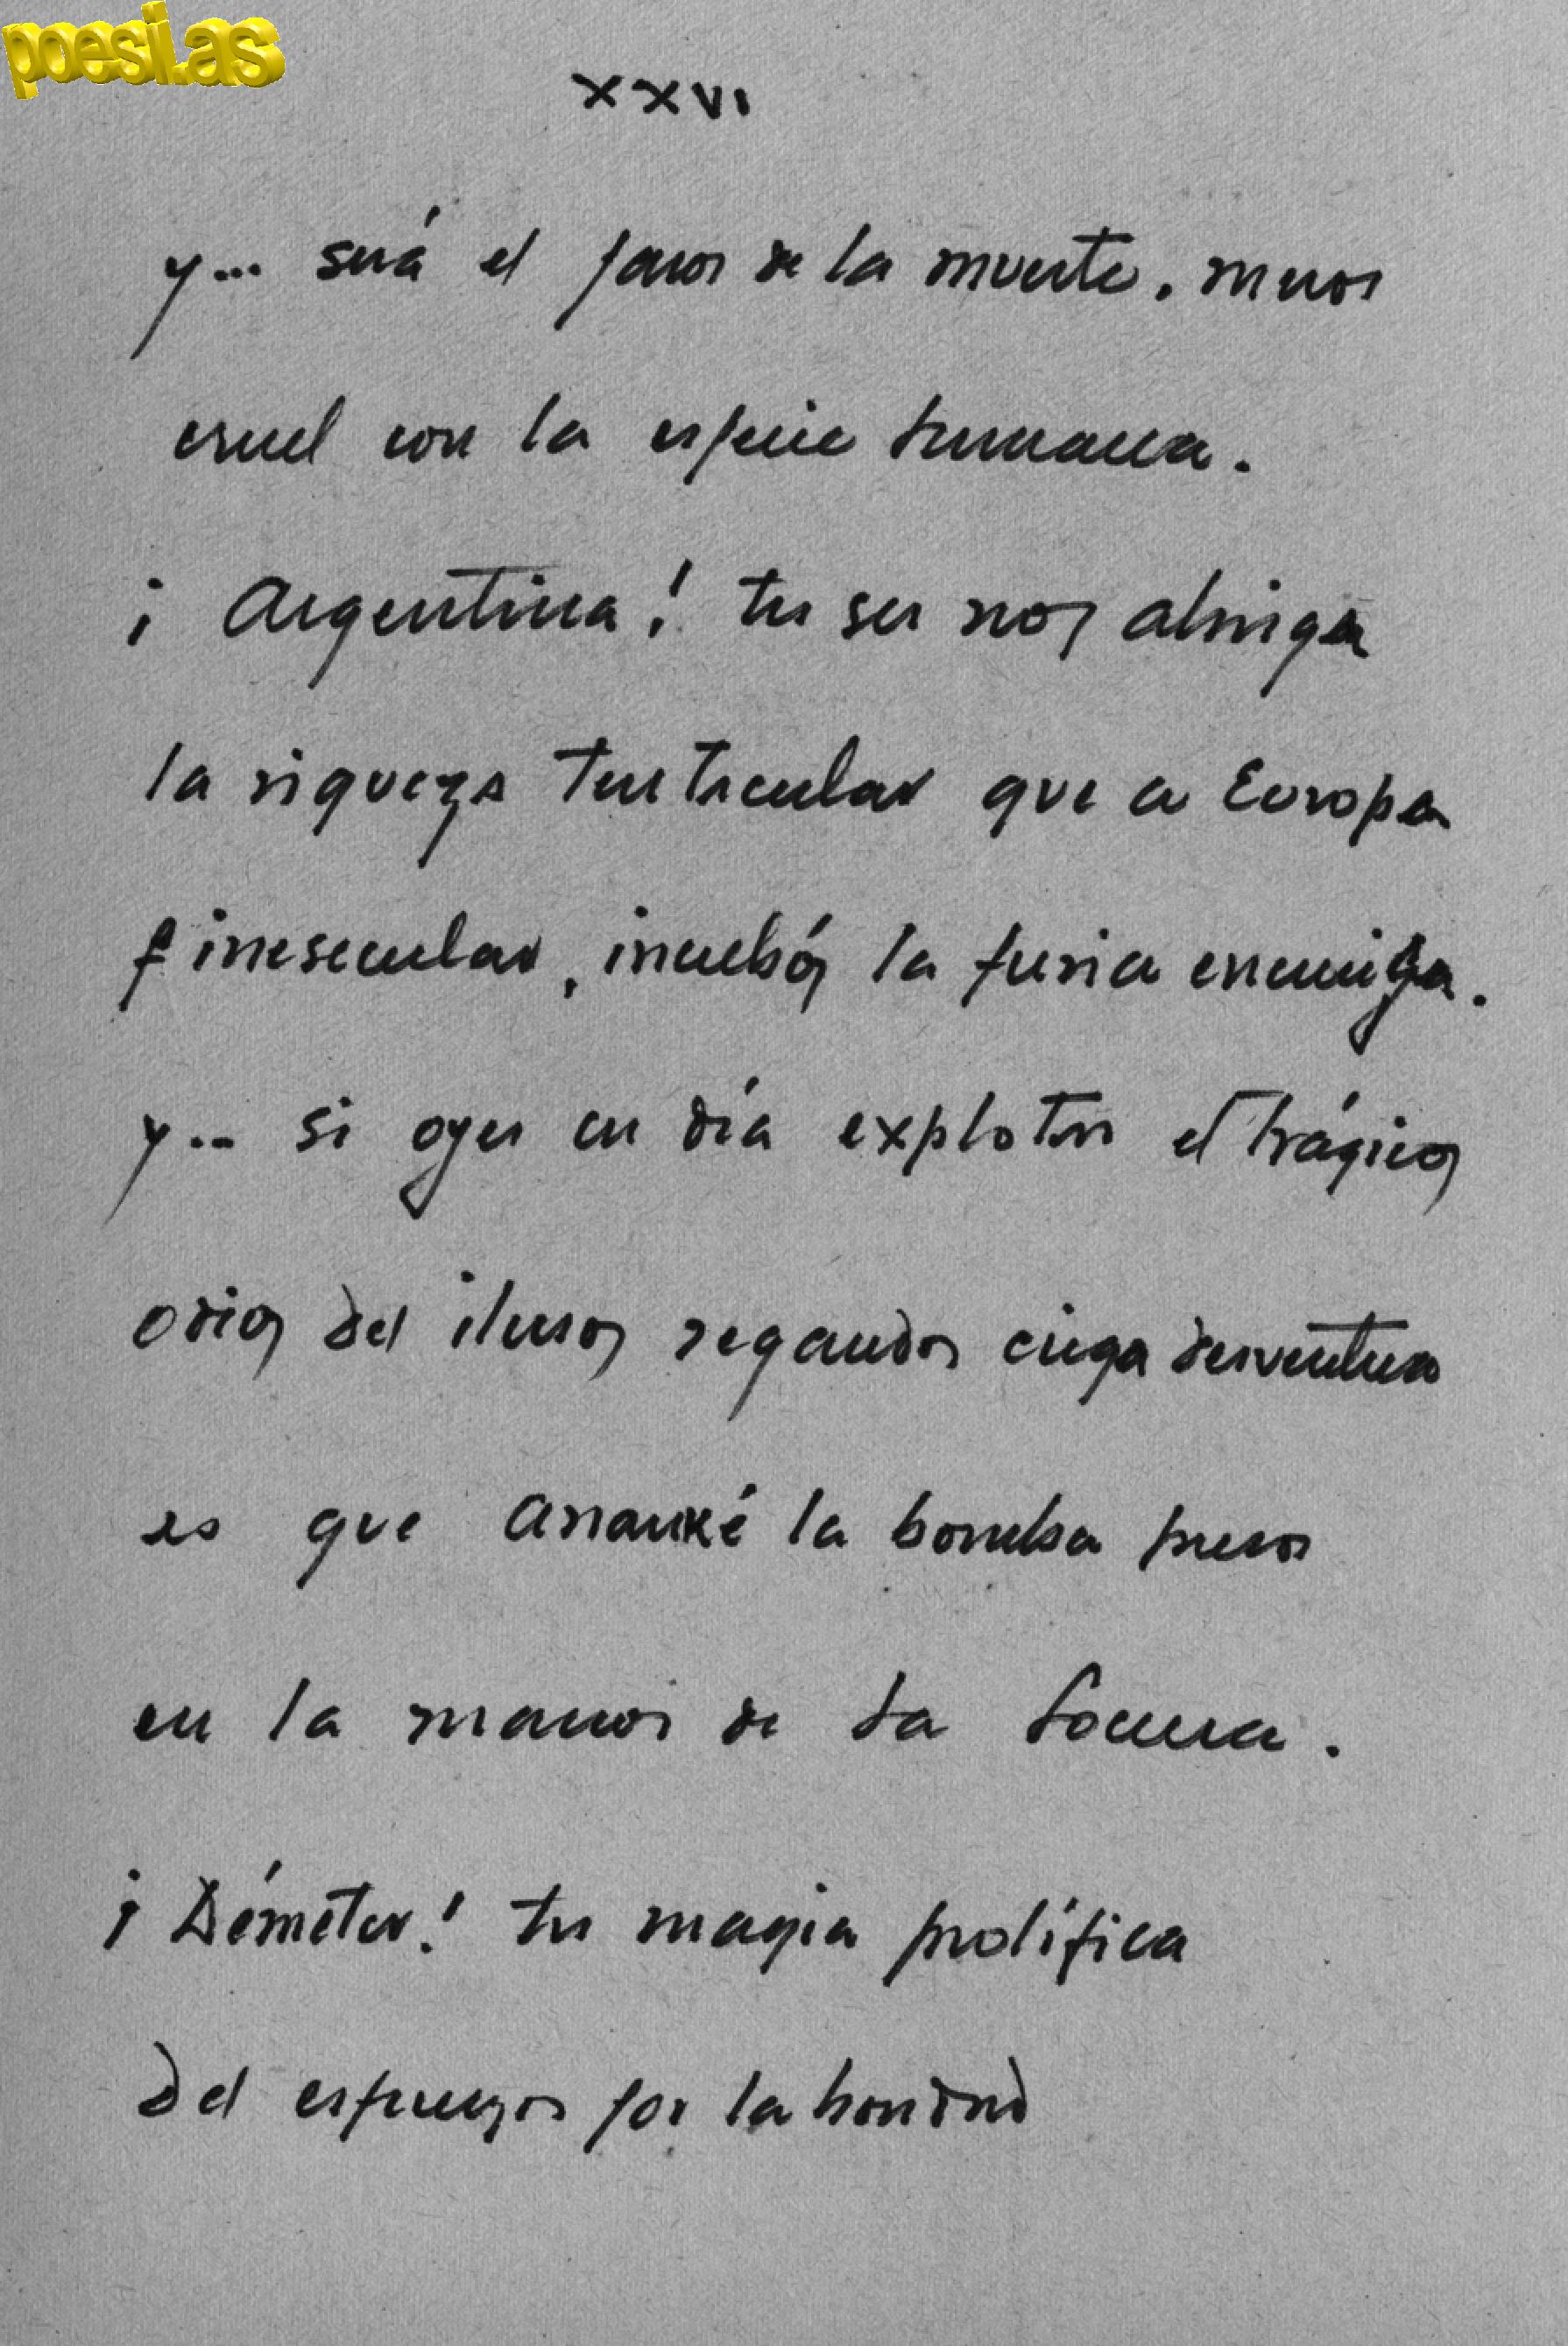 poesi.as
XXVI
y... será el paso de la muerte, menos
cruel con la especie humana.
¡Argentina! tu ser no abriga
la riqueza tentacular que a Europa
finesecular, incubó la furia enemiga.
y... si oyes un día explotar el trágico
odio del iluso regando ciega desventura
es que Ananké la bomba puso
en la mano de la Locura.
¡Démeter! tu magia prolífica
del esfuerzo por la bondad